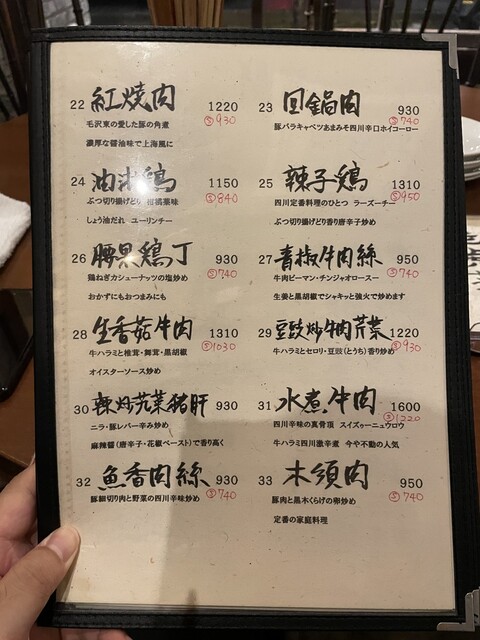 22 紅焼肉 1220
Ⓢ930
毛沢東の愛した豚の角煮
濃厚な醤油味で上海風に
23 回鍋肉 930
Ⓢ740
豚バラキャベツあまみそ四川辛口ホイコーロー
24 油淋鶏 1150
Ⓢ840
ぶつ切り揚げどり 柑橘薬味
しょう油だれ ユーリンチー
25 辣子鶏 1310
Ⓢ950
四川定番料理のひとつ ラーズーチー
ぶつ切り揚げどり香り唐辛子炒め
26 腰果鶏丁 930
Ⓢ740
鶏ねぎカシューナッツの塩炒め
おかずにもおつまみにも
27 青椒牛肉絲 950
Ⓢ740
牛肉ピーマン・チンジャオロースー
生姜と黒胡椒でシャキッと強火で炒めます
28 生香菇牛肉 1310
Ⓢ1030
牛ハラミと椎茸・舞茸・黒胡椒
オイスターソース炒め
29 豆豉炒牛肉芹菜 1220
Ⓢ930
牛ハラミとセロリ・豆豉(とうち)香り炒め
30 辣炒韮菜猪肝 930
ニラ・豚レバー辛み炒め
麻辣醤(唐辛子・花椒ペースト)で香り高く
31 水煮牛肉 1600
Ⓢ1220
四川辛味の真骨頂 スイズゥーニュウロウ
牛ハラミ四川激辛煮 今や不動の人気
32 魚香肉絲 930
Ⓢ740
豚細切り肉と野菜の四川辛味炒め
33 木須肉 950
Ⓢ740
豚肉と黒木くらげの卵炒め
定番の家庭料理